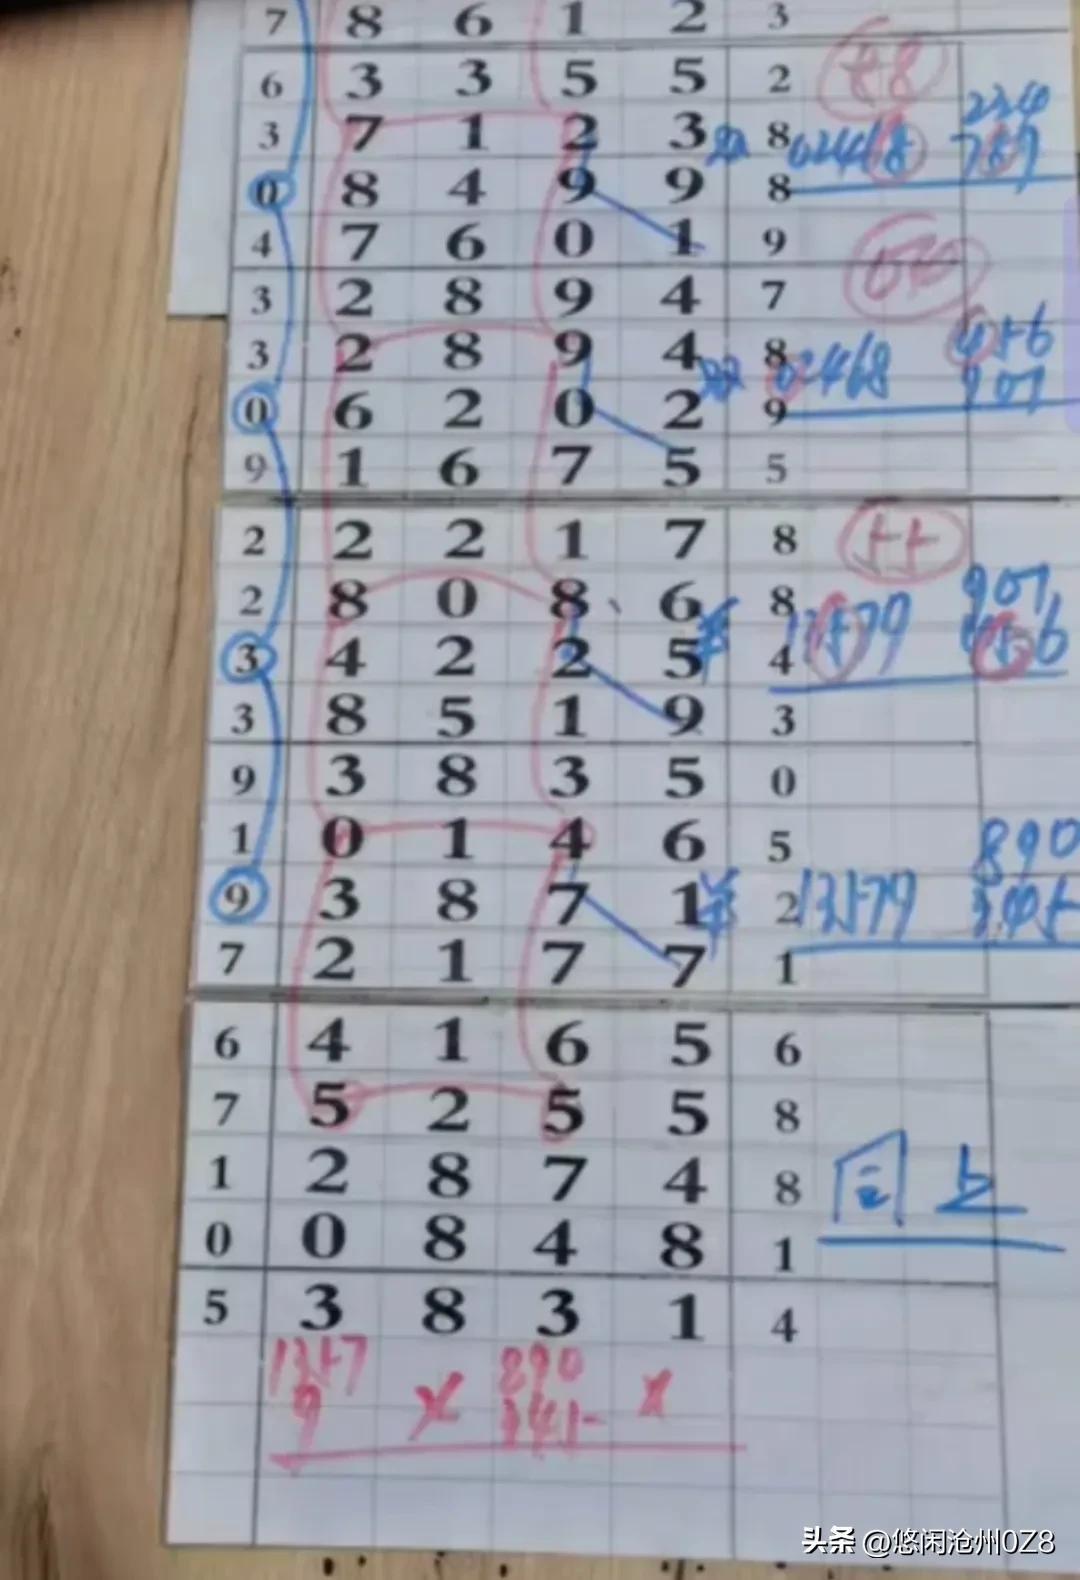 7 8 6 1 2 3
6 3 3 5 5 2
3 7 1 2 3 8 02468 789
0 8 4 9 9 8
4 7 6 0 1 9
3 2 8 9 4 7
3 2 8 9 4 8 02468 456
0 6 2 0 2 9 901
9 1 6 7 5 5
2 2 2 1 7 8
2 8 0 8 6 8 13579 901
3 4 2 2 5 4 456
3 8 5 1 9 3
9 3 8 3 5 0
1 0 1 4 6 5 890
9 3 8 7 1 2 13579 345
7 2 1 7 7 1
6 4 1 6 5 6
7 5 2 5 5 8
1 2 8 7 4 8 同上
0 0 8 4 8 1
5 3 8 3 1 4
1357 890
9 X 345 X
头条 @悠闲沧州0Z8